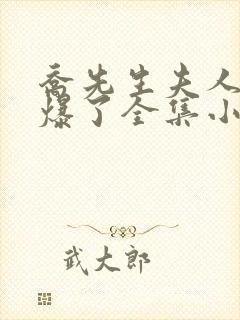 乔先生夫人
爆了全集小
武大郎